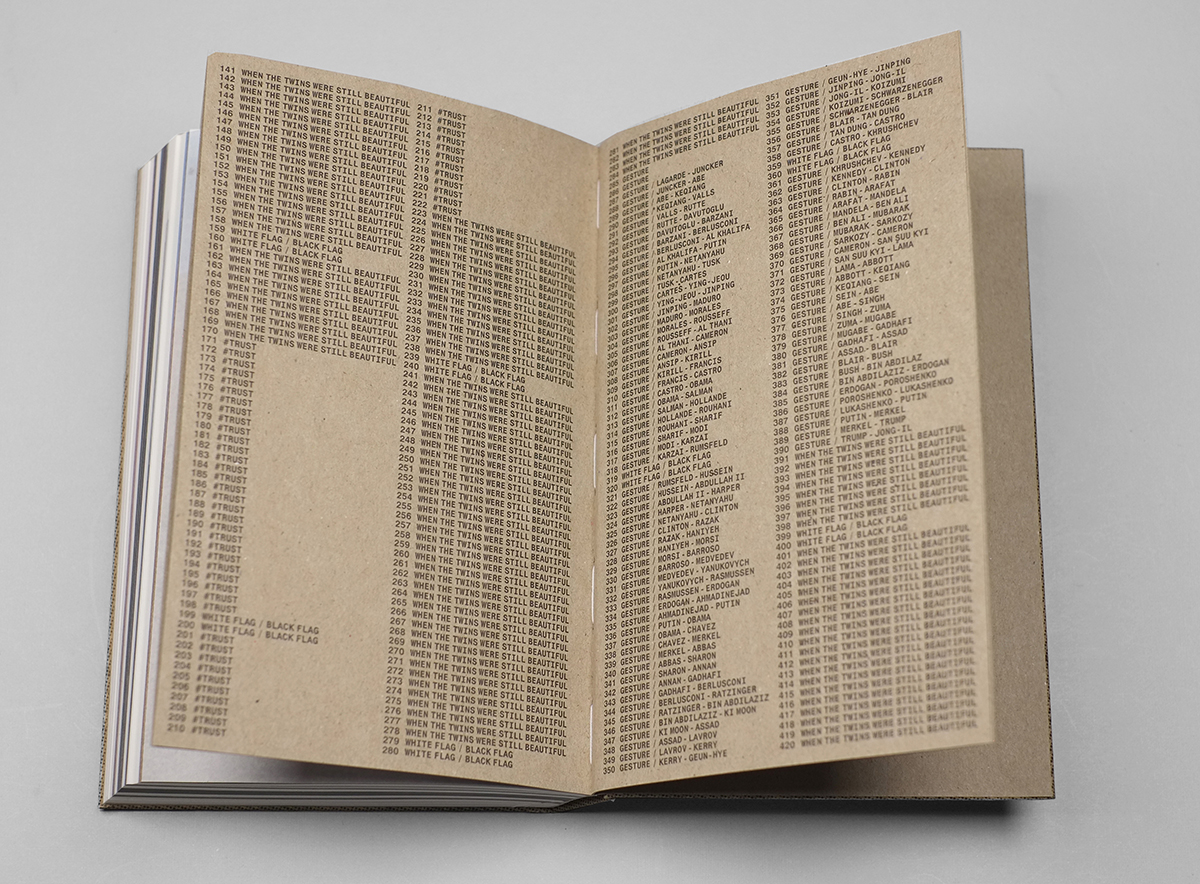 141 WHEN THE TWINS WERE STILL BEAUTIFUL
142 WHEN THE TWINS WERE STILL BEAUTIFUL
143 WHEN THE TWINS WERE STILL BEAUTIFUL
144 WHEN THE TWINS WERE STILL BEAUTIFUL
145 WHEN THE TWINS WERE STILL BEAUTIFUL
146 WHEN THE TWINS WERE STILL BEAUTIFUL
147 WHEN THE TWINS WERE STILL BEAUTIFUL
148 WHEN THE TWINS WERE STILL BEAUTIFUL
149 WHEN THE TWINS WERE STILL BEAUTIFUL
150 WHEN THE TWINS WERE STILL BEAUTIFUL
151 WHEN THE TWINS WERE STILL BEAUTIFUL
152 WHEN THE TWINS WERE STILL BEAUTIFUL
153 WHEN THE TWINS WERE STILL BEAUTIFUL
154 WHEN THE TWINS WERE STILL BEAUTIFUL
155 WHEN THE TWINS WERE STILL BEAUTIFUL
156 WHEN THE TWINS WERE STILL BEAUTIFUL
157 WHEN THE TWINS WERE STILL BEAUTIFUL
158 WHEN THE TWINS WERE STILL BEAUTIFUL
159 WHITE FLAG / BLACK FLAG
160 WHITE FLAG / BLACK FLAG
161 WHEN THE TWINS WERE STILL BEAUTIFUL
162 WHEN THE TWINS WERE STILL BEAUTIFUL
163 WHEN THE TWINS WERE STILL BEAUTIFUL
164 WHEN THE TWINS WERE STILL BEAUTIFUL
165 WHEN THE TWINS WERE STILL BEAUTIFUL
166 WHEN THE TWINS WERE STILL BEAUTIFUL
167 WHEN THE TWINS WERE STILL BEAUTIFUL
168 WHEN THE TWINS WERE STILL BEAUTIFUL
169 WHEN THE TWINS WERE STILL BEAUTIFUL
170 WHEN THE TWINS WERE STILL BEAUTIFUL
171 #TRUST
172 #TRUST
173 #TRUST
174 #TRUST
175 #TRUST
176 #TRUST
177 #TRUST
178 #TRUST
179 #TRUST
180 #TRUST
181 #TRUST
182 #TRUST
183 #TRUST
184 #TRUST
185 #TRUST
186 #TRUST
187 #TRUST
188 #TRUST
189 #TRUST
190 #TRUST
191 #TRUST
192 #TRUST
193 #TRUST
194 #TRUST
195 #TRUST
196 #TRUST
197 #TRUST
198 #TRUST
199 WHITE FLAG / BLACK FLAG
200 WHITE FLAG / BLACK FLAG
201 #TRUST
202 #TRUST
203 #TRUST
204 #TRUST
205 #TRUST
206 #TRUST
207 #TRUST
208 #TRUST
209 #TRUST
210 #TRUST
211 #TRUST
212 #TRUST
213 #TRUST
214 #TRUST
215 #TRUST
216 #TRUST
217 #TRUST
218 #TRUST
219 #TRUST
220 #TRUST
221 #TRUST
222 #TRUST
223 WHEN THE TWINS WERE STILL BEAUTIFUL
224 WHEN THE TWINS WERE STILL BEAUTIFUL
225 WHEN THE TWINS WERE STILL BEAUTIFUL
226 WHEN THE TWINS WERE STILL BEAUTIFUL
227 WHEN THE TWINS WERE STILL BEAUTIFUL
228 WHEN THE TWINS WERE STILL BEAUTIFUL
229 WHEN THE TWINS WERE STILL BEAUTIFUL
230 WHEN THE TWINS WERE STILL BEAUTIFUL
231 WHEN THE TWINS WERE STILL BEAUTIFUL
232 WHEN THE TWINS WERE STILL BEAUTIFUL
233 WHEN THE TWINS WERE STILL BEAUTIFUL
234 WHEN THE TWINS WERE STILL BEAUTIFUL
235 WHEN THE TWINS WERE STILL BEAUTIFUL
236 WHEN THE TWINS WERE STILL BEAUTIFUL
237 WHEN THE TWINS WERE STILL BEAUTIFUL
238 WHEN THE TWINS WERE STILL BEAUTIFUL
239 WHITE FLAG / BLACK FLAG
240 WHITE FLAG / BLACK FLAG
241 WHEN THE TWINS WERE STILL BEAUTIFUL
242 WHEN THE TWINS WERE STILL BEAUTIFUL
243 WHEN THE TWINS WERE STILL BEAUTIFUL
244 WHEN THE TWINS WERE STILL BEAUTIFUL
245 WHEN THE TWINS WERE STILL BEAUTIFUL
246 WHEN THE TWINS WERE STILL BEAUTIFUL
247 WHEN THE TWINS WERE STILL BEAUTIFUL
248 WHEN THE TWINS WERE STILL BEAUTIFUL
249 WHEN THE TWINS WERE STILL BEAUTIFUL
250 WHEN THE TWINS WERE STILL BEAUTIFUL
251 WHEN THE TWINS WERE STILL BEAUTIFUL
252 WHEN THE TWINS WERE STILL BEAUTIFUL
253 WHEN THE TWINS WERE STILL BEAUTIFUL
254 WHEN THE TWINS WERE STILL BEAUTIFUL
255 WHEN THE TWINS WERE STILL BEAUTIFUL
256 WHEN THE TWINS WERE STILL BEAUTIFUL
257 WHEN THE TWINS WERE STILL BEAUTIFUL
258 WHEN THE TWINS WERE STILL BEAUTIFUL
259 WHEN THE TWINS WERE STILL BEAUTIFUL
260 WHEN THE TWINS WERE STILL BEAUTIFUL
261 WHEN THE TWINS WERE STILL BEAUTIFUL
262 WHEN THE TWINS WERE STILL BEAUTIFUL
263 WHEN THE TWINS WERE STILL BEAUTIFUL
264 WHEN THE TWINS WERE STILL BEAUTIFUL
265 WHEN THE TWINS WERE STILL BEAUTIFUL
266 WHEN THE TWINS WERE STILL BEAUTIFUL
267 WHEN THE TWINS WERE STILL BEAUTIFUL
268 WHEN THE TWINS WERE STILL BEAUTIFUL
269 WHEN THE TWINS WERE STILL BEAUTIFUL
270 WHEN THE TWINS WERE STILL BEAUTIFUL
271 WHEN THE TWINS WERE STILL BEAUTIFUL
272 WHEN THE TWINS WERE STILL BEAUTIFUL
273 WHEN THE TWINS WERE STILL BEAUTIFUL
274 WHEN THE TWINS WERE STILL BEAUTIFUL
275 WHEN THE TWINS WERE STILL BEAUTIFUL
276 WHEN THE TWINS WERE STILL BEAUTIFUL
277 WHEN THE TWINS WERE STILL BEAUTIFUL
278 WHEN THE TWINS WERE STILL BEAUTIFUL
279 WHITE FLAG / BLACK FLAG
280 WHITE FLAG / BLACK FLAG
281 WHEN THE TWINS WERE STILL BEAUTIFUL
282 WHEN THE TWINS WERE STILL BEAUTIFUL
283 WHEN THE TWINS WERE STILL BEAUTIFUL
284 WHEN THE TWINS WERE STILL BEAUTIFUL
285 GESTURE
286 GESTURE
287 GESTURE / LAGARDE - JUNCKER
288 GESTURE / JUNCKER - ABE
289 GESTURE / ABE - KEQIANG
290 GESTURE / KEQIANG - VALLS
291 GESTURE / VALLS - RUTTE
292 GESTURE / RUTTE - DAVUTOGLU
293 GESTURE / DAVUTOGLU - BARZANI
294 GESTURE / BARZANI - BERLUSCONI
295 GESTURE / BERLUSCONI - AL KHALIFA
296 GESTURE / AL KHALIFA - PUTIN
297 GESTURE / PUTIN - NETANYAHU
298 GESTURE / NETANYAHU - TUSK
299 GESTURE / TUSK - CARTES
300 GESTURE / CARTES - YING-JEOU
301 GESTURE / YING-JEOU - JINPING
302 GESTURE / JINPING - MADURO
303 GESTURE / MADURO - MORALES
304 GESTURE / MORALES - ROUSSEFF
305 GESTURE / ROUSSEFF - AL THANI
306 GESTURE / AL THANI - CAMERON
307 GESTURE / CAMERON - ANSIP
308 GESTURE / ANSIP - KIRILL
309 GESTURE / KIRILL - FRANCIS
310 GESTURE / FRANCIS - CASTRO
311 GESTURE / CASTRO - OBAMA
312 GESTURE / OBAMA - SALMAN
313 GESTURE / SALMAN - HOLLANDE
314 GESTURE / HOLLANDE - ROUHANI
315 GESTURE / ROUHANI - SHARIF
316 GESTURE / SHARIF - MODI
317 GESTURE / MODI - KARZAI
318 GESTURE / KARZAI - RUMSFELD
319 WHITE FLAG / BLACK FLAG
320 WHITE FLAG / BLACK FLAG
321 GESTURE / RUMSFELD - HUSSEIN
322 GESTURE / HUSSEIN - ABDULLAH II
323 GESTURE / ABDULLAH II - HARPER
324 GESTURE / HARPER - NETANYAHU
325 GESTURE / NETANYAHU - CLINTON
326 GESTURE / CLINTON - RAZAK
327 GESTURE / RAZAK - HANIYEH
328 GESTURE / HANIYEH - MORSI
329 GESTURE / MORSI - BARROSO
330 GESTURE / BARROSO - MEDVEDEV
331 GESTURE / MEDVEDEV - YANUKOVYCH
332 GESTURE / YANUKOVYCH - RASMUSSEN
333 GESTURE / RASMUSSEN - ERDOGAN
334 GESTURE / ERDOGAN - AHMADINEJAD
335 GESTURE / AHMADINEJAD - PUTIN
336 GESTURE / PUTIN - OBAMA
337 GESTURE / OBAMA - CHAVEZ
338 GESTURE / CHAVEZ - MERKEL
339 GESTURE / MERKEL - ABBAS
340 GESTURE / ABBAS - SHARON
341 GESTURE / SHARON - ANNAN
342 GESTURE / ANNAN - GADHAFI
343 GESTURE / GADHAFI - BERLUSCONI
344 GESTURE / BERLUSCONI - RATZINGER
345 GESTURE / RATZINGER - BIN ABDILAZIZ
346 GESTURE / BIN ABDILAZIZ - KI MOON
347 GESTURE / KI MOON - ASSAD
348 GESTURE / ASSAD - LAVROV
349 GESTURE / LAVROV - KERRY
350 GESTURE / KERRY - GEUN-HYE
351 GESTURE / GEUN-HYE - JINPING
352 GESTURE / JINPING - JONG-IL
353 GESTURE / JONG-IL - KOIZUMI
354 GESTURE / KOIZUMI - SCHWARZENEGGER
355 GESTURE / SCHWARZENEGGER - BLAIR
356 GESTURE / BLAIR - TAN DUNG
357 GESTURE / TAN DUNG - CASTRO
358 GESTURE / CASTRO - KHRUSHCHEV
359 WHITE FLAG / BLACK FLAG
360 WHITE FLAG / BLACK FLAG
361 GESTURE / KHRUSHCHEV - KENNEDY
362 GESTURE / KENNEDY - CLINTON
363 GESTURE / CLINTON - RABIN
364 GESTURE / RABIN - ARAFAT
365 GESTURE / ARAFAT - MANDELA
366 GESTURE / MANDELA - BEN ALI
367 GESTURE / BEN ALI - MUBARAK
368 GESTURE / MUBARAK - SARKOZY
369 GESTURE / SARKOZY - CAMERON
370 GESTURE / CAMERON - SAN SUU KYI
371 GESTURE / SAN SUU KYI - LAMA
372 GESTURE / LAMA - ABBOTT
373 GESTURE / ABBOTT - KEQIANG
374 GESTURE / KEQIANG - SEIN
375 GESTURE / SEIN - ABE
376 GESTURE / ABE - SINGH
377 GESTURE / SINGH - ZUMA
378 GESTURE / ZUMA - MUGABE
379 GESTURE / MUGABE - GADHAFI
380 GESTURE / GADHAFI - ASSAD
381 GESTURE / ASSAD - BLAIR
382 GESTURE / BLAIR - BUSH
383 GESTURE / BUSH - BIN ABDILAZ
384 GESTURE / BIN ABDILAZIZ - ERDOGAN
385 GESTURE / ERDOGAN - POROSHENKO
386 GESTURE / POROSHENKO - LUKASHENKO
387 GESTURE / LUKASHENKO - PUTIN
388 GESTURE / PUTIN - MERKEL
389 GESTURE / MERKEL - TRUMP
390 GESTURE / TRUMP - JONG-IL
391 WHEN THE TWINS WERE STILL BEAUTIFUL
392 WHEN THE TWINS WERE STILL BEAUTIFUL
393 WHEN THE TWINS WERE STILL BEAUTIFUL
394 WHEN THE TWINS WERE STILL BEAUTIFUL
395 WHEN THE TWINS WERE STILL BEAUTIFUL
396 WHEN THE TWINS WERE STILL BEAUTIFUL
397 WHEN THE TWINS WERE STILL BEAUTIFUL
398 WHEN THE TWINS WERE STILL BEAUTIFUL
399 WHITE FLAG / BLACK FLAG
400 WHITE FLAG / BLACK FLAG
401 WHEN THE TWINS WERE STILL BEAUTIFUL
402 WHEN THE TWINS WERE STILL BEAUTIFUL
403 WHEN THE TWINS WERE STILL BEAUTIFUL
404 WHEN THE TWINS WERE STILL BEAUTIFUL
405 WHEN THE TWINS WERE STILL BEAUTIFUL
406 WHEN THE TWINS WERE STILL BEAUTIFUL
407 WHEN THE TWINS WERE STILL BEAUTIFUL
408 WHEN THE TWINS WERE STILL BEAUTIFUL
409 WHEN THE TWINS WERE STILL BEAUTIFUL
410 WHEN THE TWINS WERE STILL BEAUTIFUL
411 WHEN THE TWINS WERE STILL BEAUTIFUL
412 WHEN THE TWINS WERE STILL BEAUTIFUL
413 WHEN THE TWINS WERE STILL BEAUTIFUL
414 WHEN THE TWINS WERE STILL BEAUTIFUL
415 WHEN THE TWINS WERE STILL BEAUTIFUL
416 WHEN THE TWINS WERE STILL BEAUTIFUL
417 WHEN THE TWINS WERE STILL BEAUTIFUL
418 WHEN THE TWINS WERE STILL BEAUTIFUL
419 WHEN THE TWINS WERE STILL BEAUTIFUL
420 WHEN THE TWINS WERE STILL BEAUTIFUL